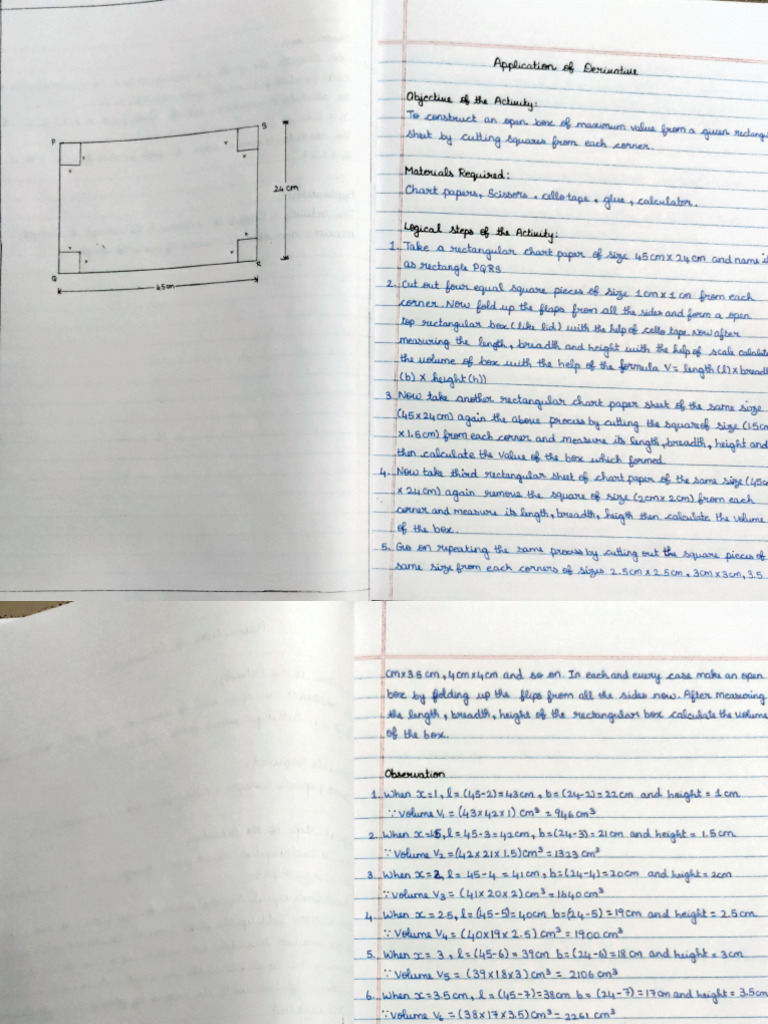 P
S
x
x
x
x
24 cm
x
x
x
x
Q
R
45cm
Application of Derivative
Objective of the Activity:
To construct an open box of maximum value from a given rectangu
sheet by cutting squares from each corner.
Materials Required:
Chart papers, Scissors, cello tape, glue, calculator.
Logical steps of the Activity:
1. Take a rectangular chart paper of size 45cm x 24 cm and name it
as rectangle PQRS
2. Cut out four equal square pieces of size 1cm x 1 cm from each
corner. Now fold up the flaps from all the sides and form a open
top rectangular box (like lid) with the help of cello tape. Now after
measuring the length, breadth and height with the help of scale calculate
the volume of box with the help of the formula V = length (l) x breadt
(b) x height (h))
3. Now take another rectangular chart paper sheet of the same size
(45x24cm) again the above process by cutting the square of size (1.5cm
x 1.5cm) from each corner and measure its length, breadth, height and
then calculate the value of the box which formed.
4. Now take third rectangular sheet of chart paper of the same size (45cm
x 24cm) again remove the square of size (2cm x 2cm) from each
corner and measure its length, breadth, heigth then calculate the volume
of the box.
5. Go on repeating the same process by cutting out the square pieces of
same size from each corners of sizes 2.5cm x 2.5cm, 3cm x 3cm, 3.5
cm x 3.5 cm, 4cm x 4cm and so on. In each and every case make an open
box by folding up the flips from all the sides now. After measuring
the length, breadth, height of the rectangular box calculate the volume
of the box.
Observation
1. When x=1, l = (45-2)=43cm, b= (24-2)=22cm and height = 1cm
∵ Volume V₁ = (43x42x1) cm³ = 946cm³
2. When x=1.5, l = 45-3=42cm, b=(24-3)=21cm and height = 1.5cm
∵ Volume V₂ = (42x21x1.5)cm³ = 1323 cm³
3. When x=2, l = 45-4 = 41cm, b=(24-4)=20cm and height = 2cm
∵ Volume V₃ = (41x20x2) cm³ = 1640cm³
4. When x = 2.5, l = (45-5)=40cm b=(24-5)=19cm and height = 2.5cm
∵ Volume V₄ = (40x19x2.5) cm³ = 1900 cm³
5. When x = 3, l = (45-6)=39cm b= (24-6)=18cm and height = 3cm
∵ Volume V₅ = (39x18x3) cm³ = 2106 cm³
6. When x=3.5cm, l = (45-7)=38cm b = (24-7)=17cm and height = 3.5cm
∵ Volume V₆ = (38x17x3.5)cm³ = 2261 cm³